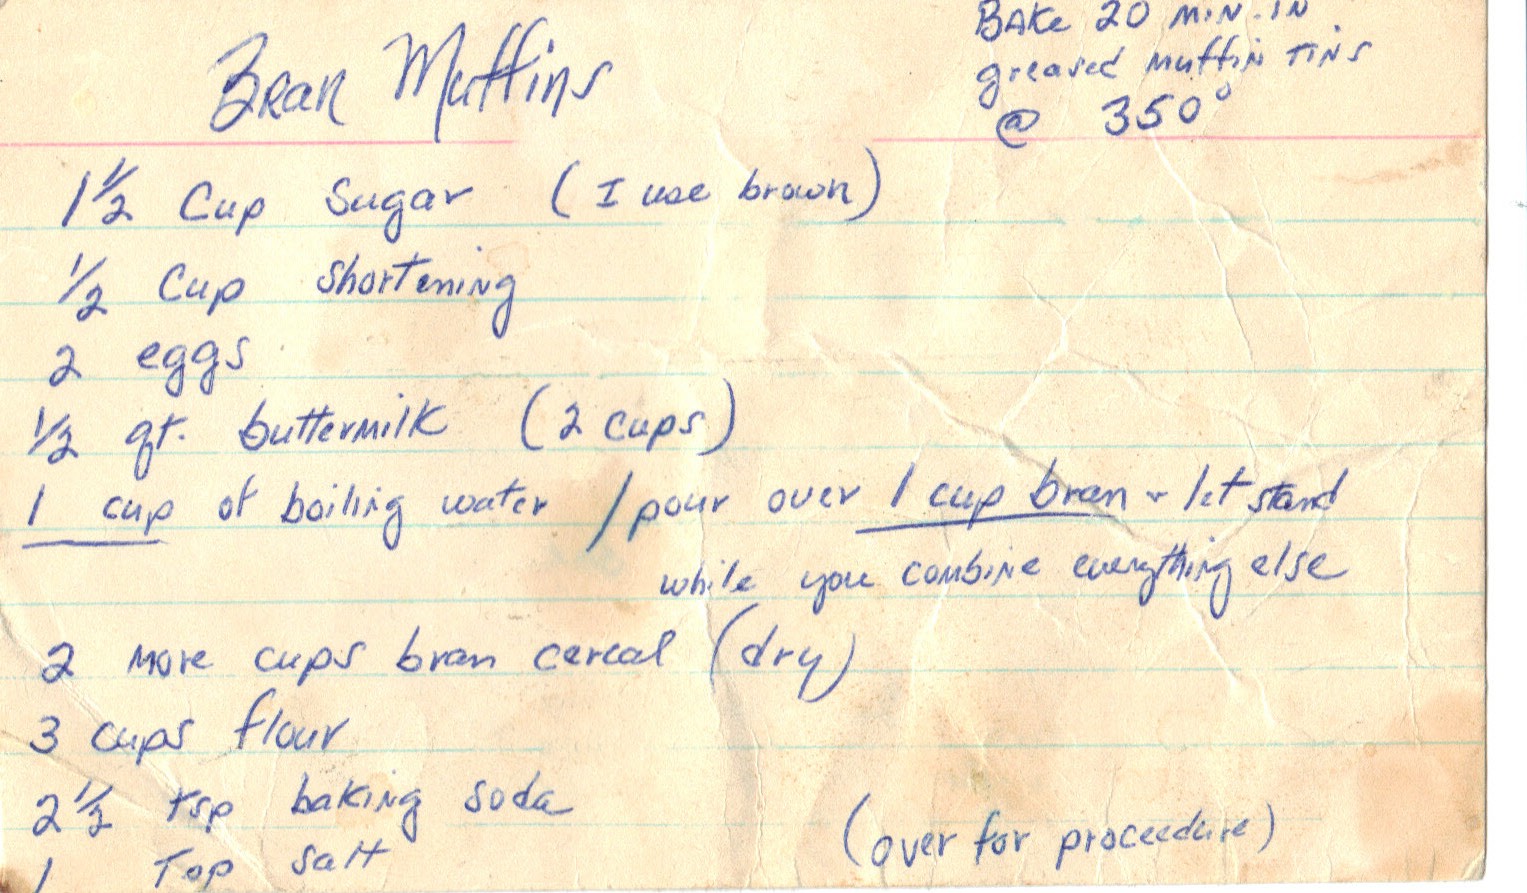 Bran Muffins
Bake 20 min. in
greased muffin tins
@ 350°
1 1/2 Cup Sugar (I use brown)
1/2 Cup shortening
2 eggs
1/2 qt. buttermilk (2 cups)
1 cup of boiling water / pour over 1 cup bran + let stand
while you combine everything else
2 more cups bran cereal (dry)
3 cups flour
2 1/2 tsp baking soda
1 Tsp salt
(over for proceedure)